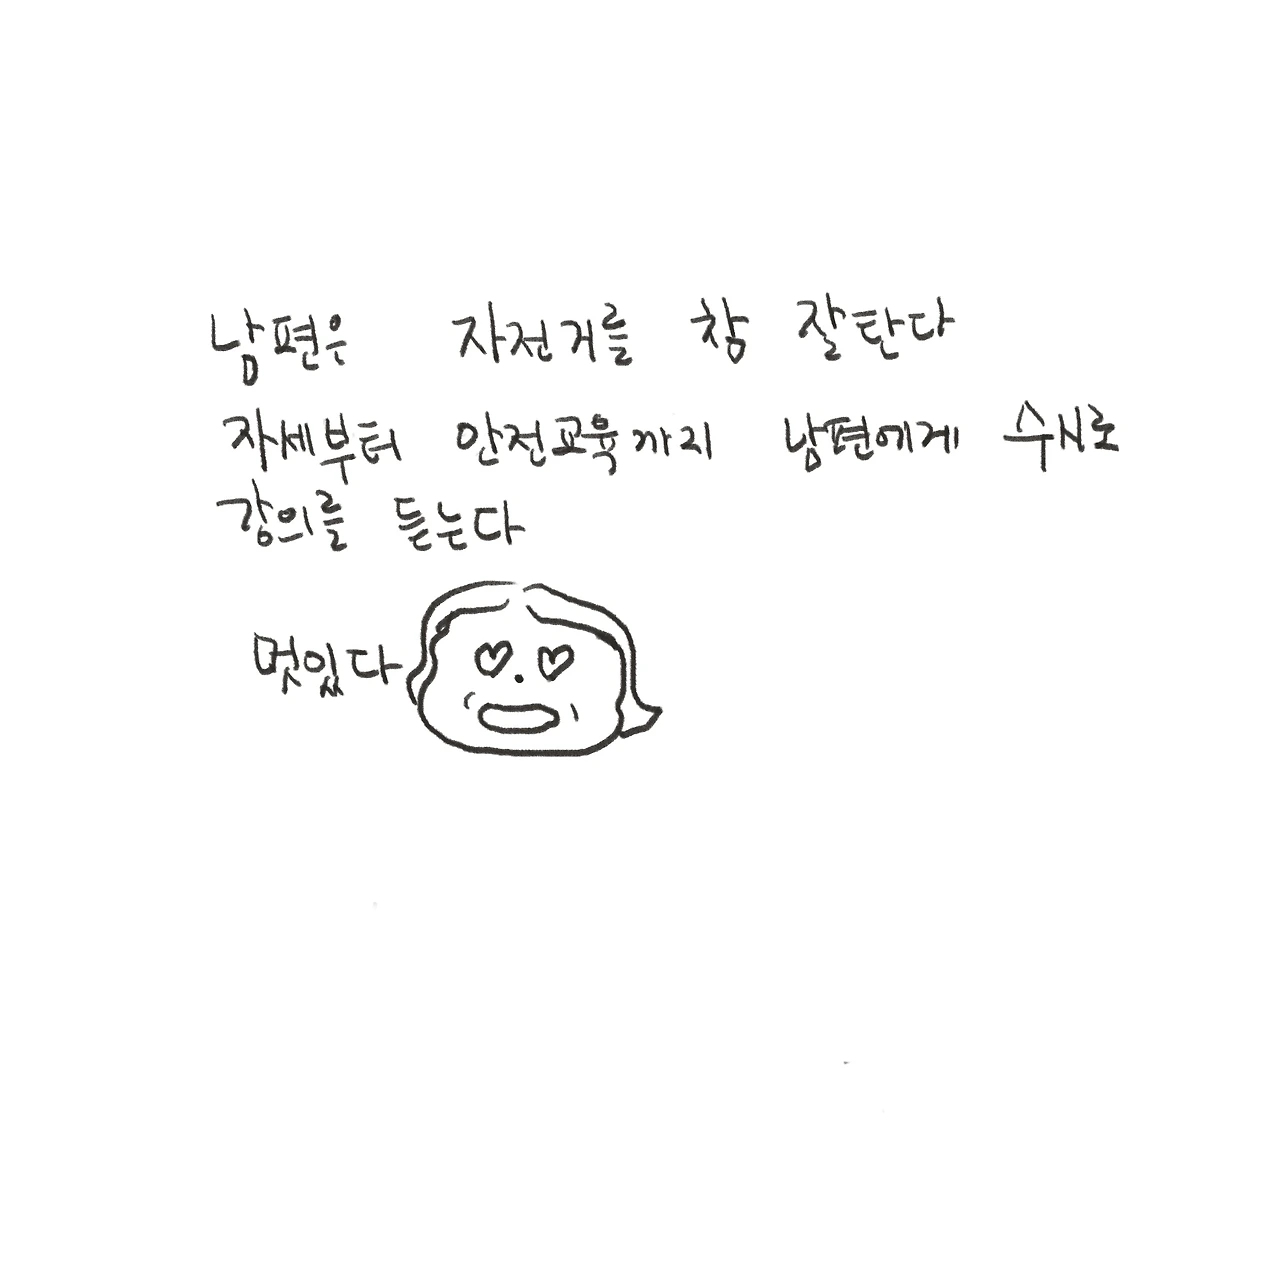 남편은 자전거를 참 잘탄다
자세부터 안전교육까지 남편에게 수시로
강의를 듣는다
멋있다